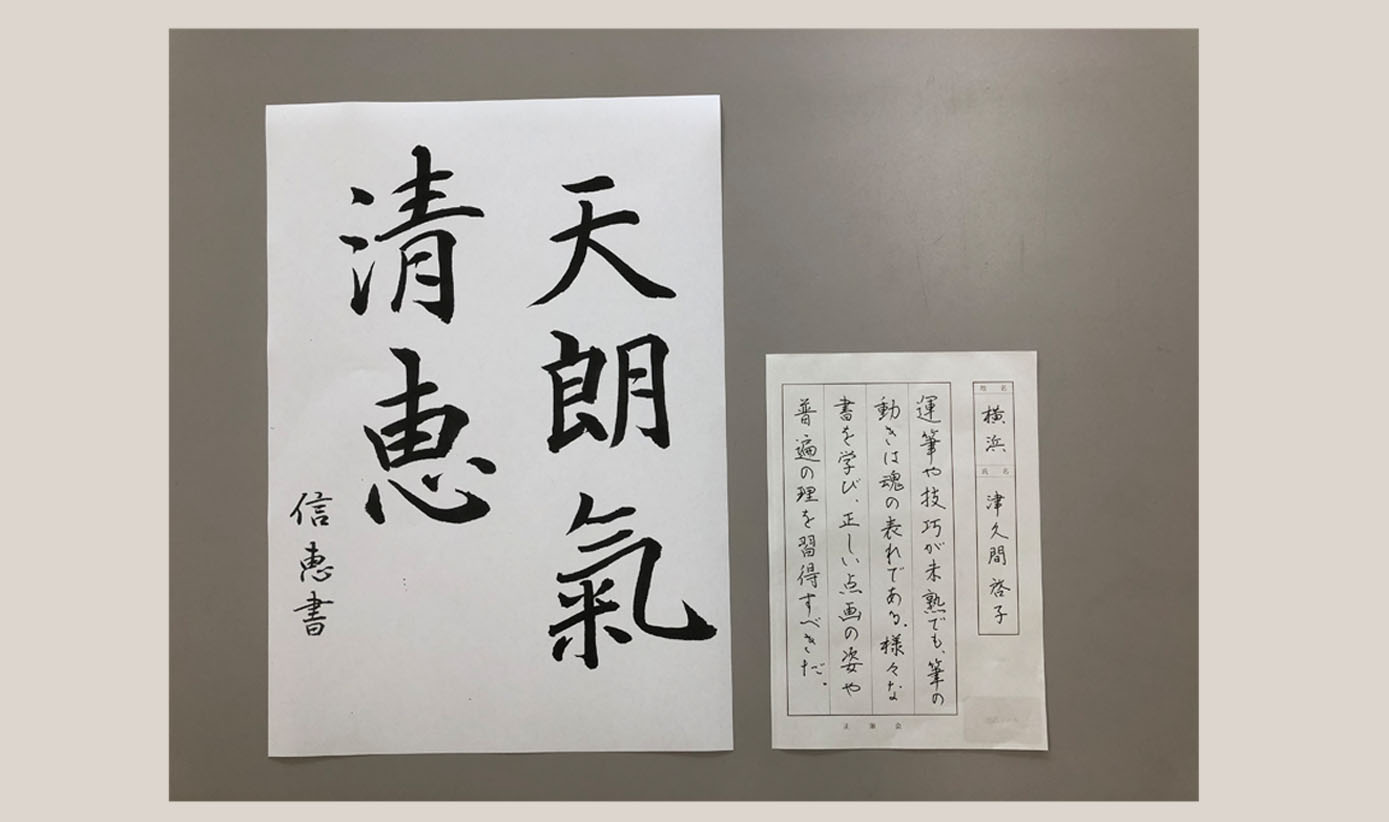 天朗氣
清恵
信恵書
地名
横浜
氏名
津久間啓子
運筆や技巧が未熟でも、筆の
動きは魂の表れである。様々な
書を学び、正しい点画の姿や
普遍の理を習得すべきだ。